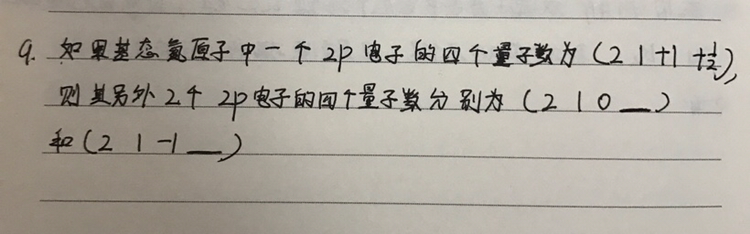 9. 如果基态氮原子中一个 2p 电子的四个量子数为 (2 1 +1 +1/2),
则其另外 2个 2p 电子的四个量子数分别为 (2 1 0 __)
和 (2 1 -1 __)